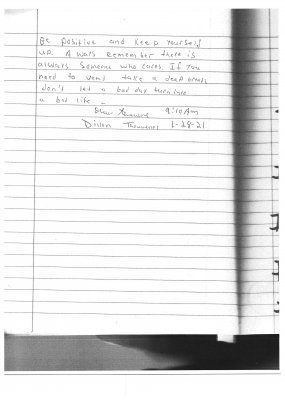 Be Positive and Keep Yourself
UP. Always Remember there is
always Someone who cares. If You
need to vent take a deep breath
don't let a bad day turn into
a bad life -
9:10 Am
1-28-21